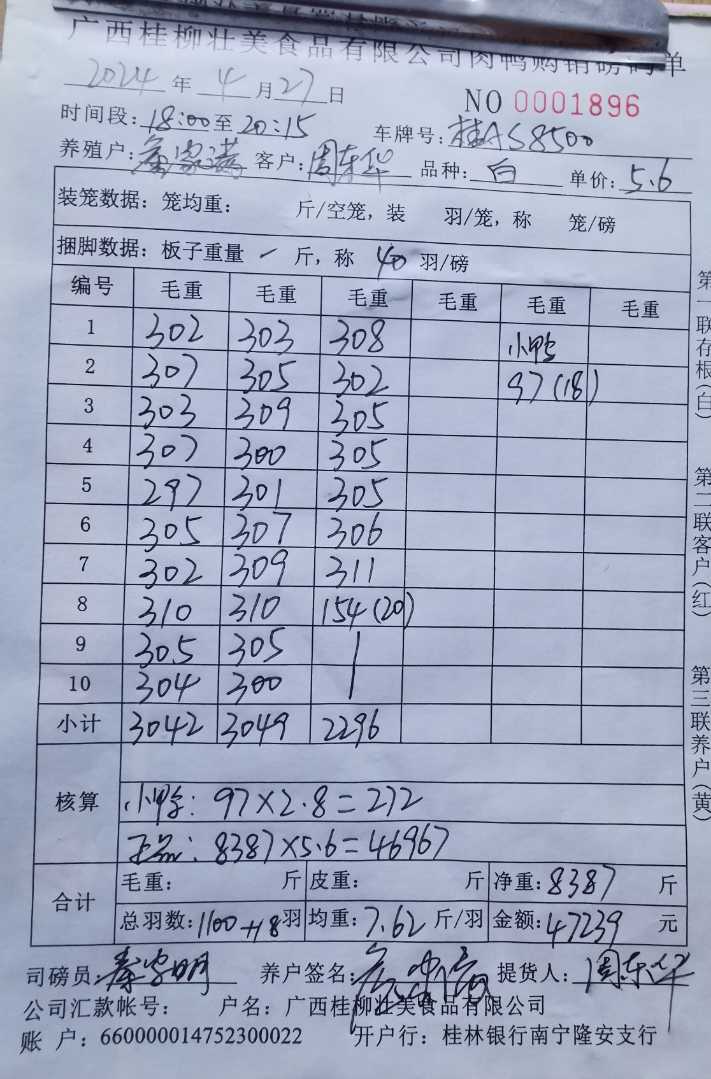 广西桂柳壮美食品有限公司肉鸭购销磅码单
2024 年 4 月 27 日
NO 0001896
时间段: 18:00 至 20:15 车牌号: 桂AS8500
养殖户: 客户: 周东华 品种: 白 单价: 5.6
装笼数据: 笼均重: 斤/空笼, 装 羽/笼, 称 笼/磅
捆脚数据: 板子重量 一 斤, 称 40 羽/磅
编号 毛重 毛重 毛重 毛重 毛重 毛重
1 302 303 308 小鸭
2 307 305 302 97(18)
3 303 309 305
4 307 300 305
5 297 301 305
6 305 307 306
7 302 309 311
8 310 310 154(20)
9 305 305
10 304 300
小计 3042 3049 2296
核算
小鸭: 97×2.8=272
正品: 8387×5.6=46967
合计
毛重: 斤 皮重: 斤 净重: 8387 斤
总羽数: 1100+18 羽 均重: 7.62 斤/羽 金额: 47239 元
司磅员: 秦家明 养户签名: 提货人: 周东华
公司汇款帐号: 户名: 广西桂柳壮美食品有限公司
账户: 660000014752300022 开户行: 桂林银行南宁隆安支行
第一联存根(白)
第二联客户(红)
第三联养户(黄)